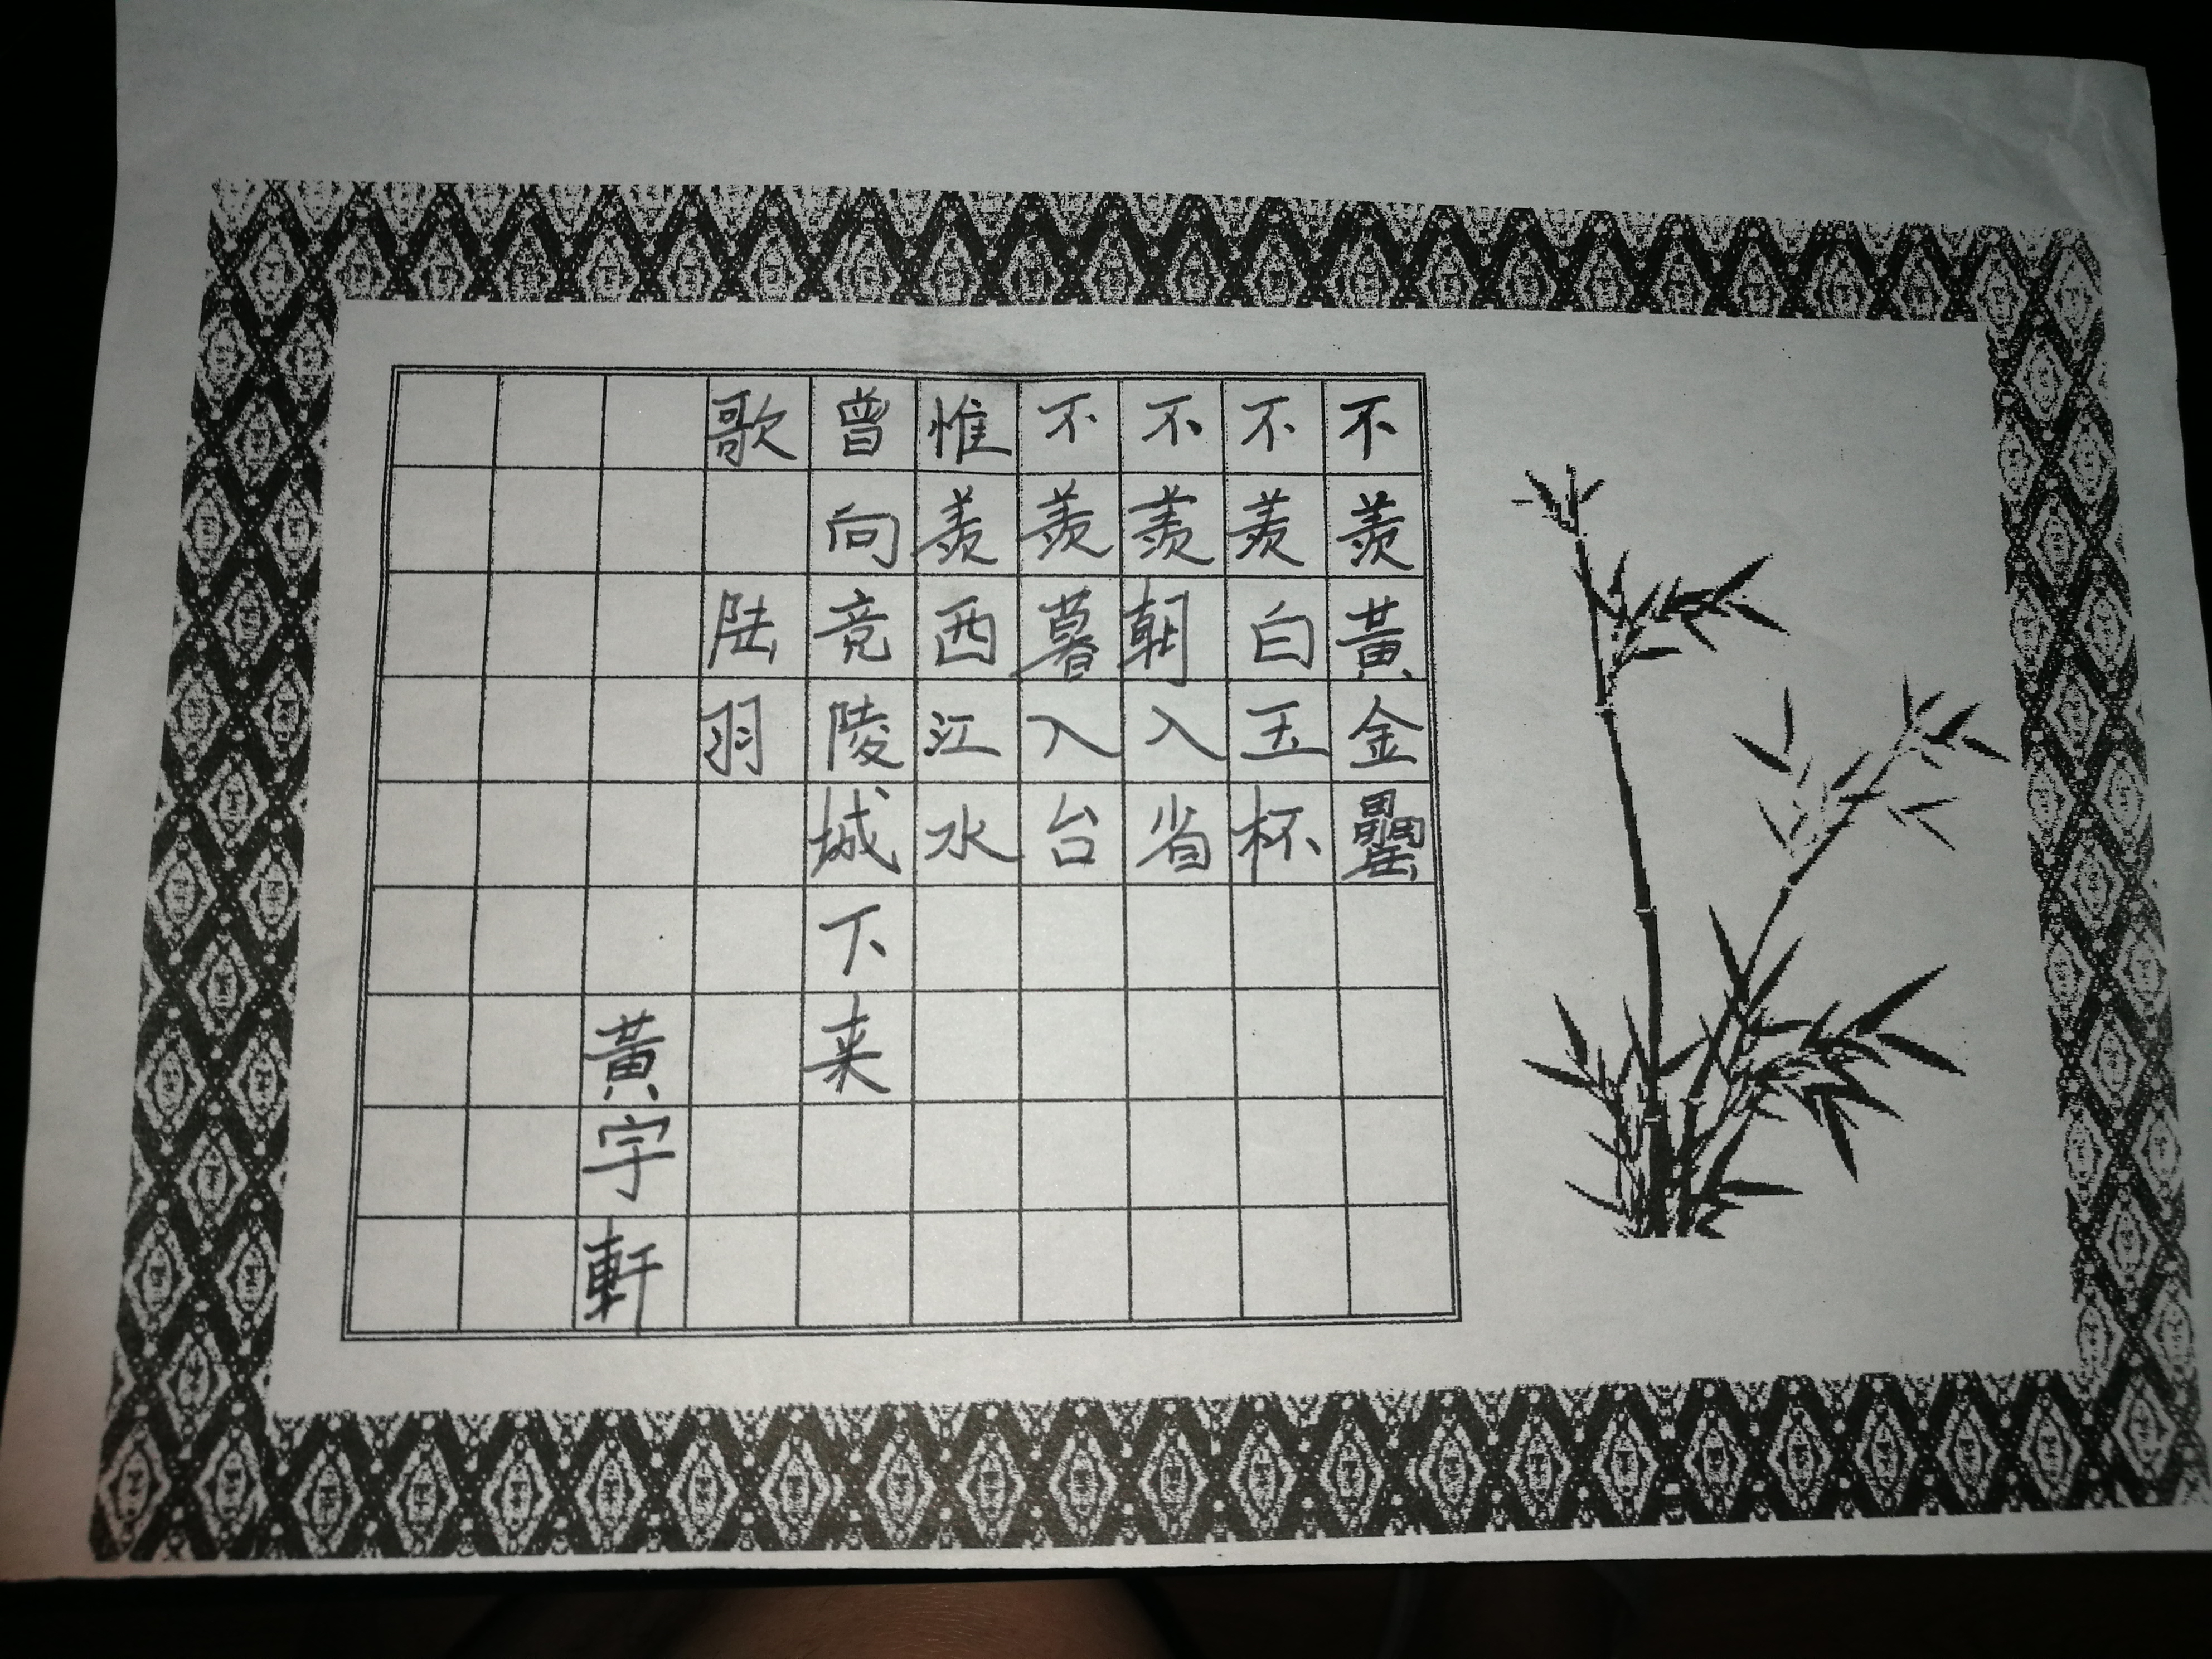 不羡黃金罍
不羡白玉杯
不羡朝入省
不羡暮入台
惟羡西江水
曾向竞陵城下来
歌 陆羽
黃宇軒